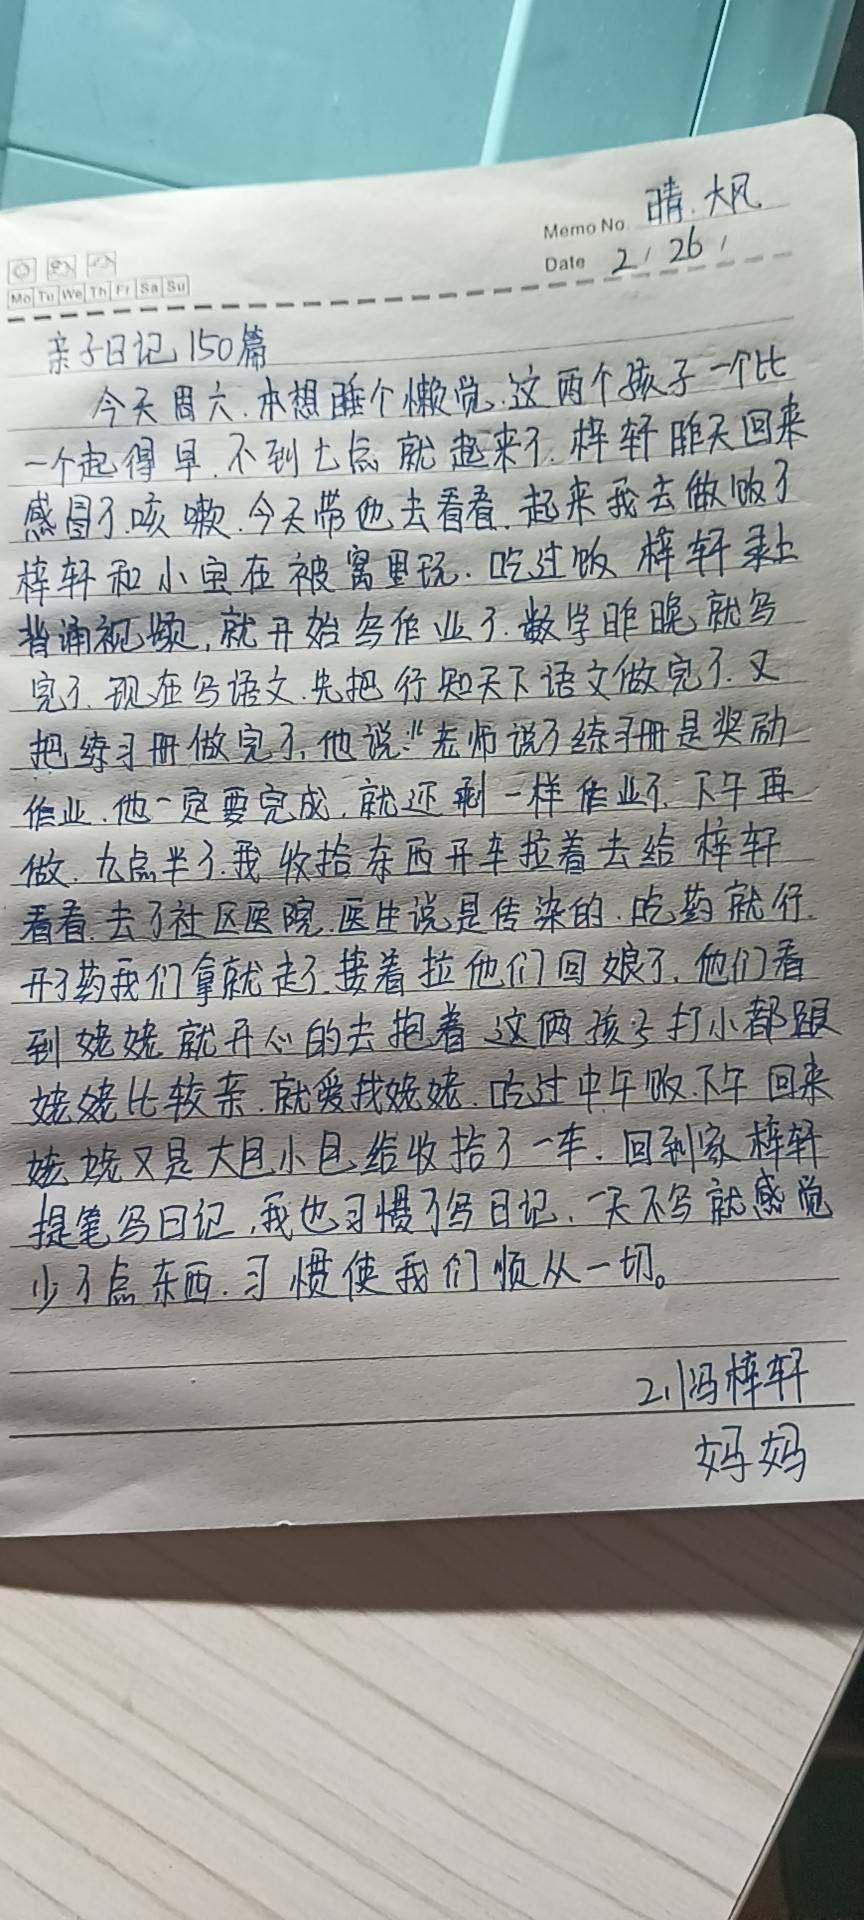 Memo No. 晴.大风
Date 2/26/
Mo Tu We Th Fr Sa Su
亲子日记150篇
今天周六.本想睡个懒觉.这两个孩子一个比
一个起得早.不到七点就起来了.梓轩昨天回来
感冒了.咳嗽.今天带他去看看.起来我去做饭了
梓轩和小宝在被窝里玩.吃过饭梓轩录上
背诵视频,就开始写作业了.数学昨晚就写
完了.现在写语文.先把行知天下语文做完了.又
把练习册做完了,他说:"老师说了练习册是奖励
作业.他一定要完成.就还剩一样作业了.下午再
做.九点半了.我收拾东西开车拉着去给梓轩
看看.去了社区医院.医生说是传染的.吃药就行.
开了药我们拿就走了.接着拉他们回娘了.他们看
到姥姥就开心的去抱着.这俩孩子打小都跟
姥姥比较亲.就爱找姥姥.吃过中午饭.下午回来
姥姥又是大包小包给收拾了一车.回到家梓轩
提笔写日记,我也习惯了写日记.一天不写就感觉
少了点东西.习惯使我们顺从一切。
2.1冯梓轩
妈妈